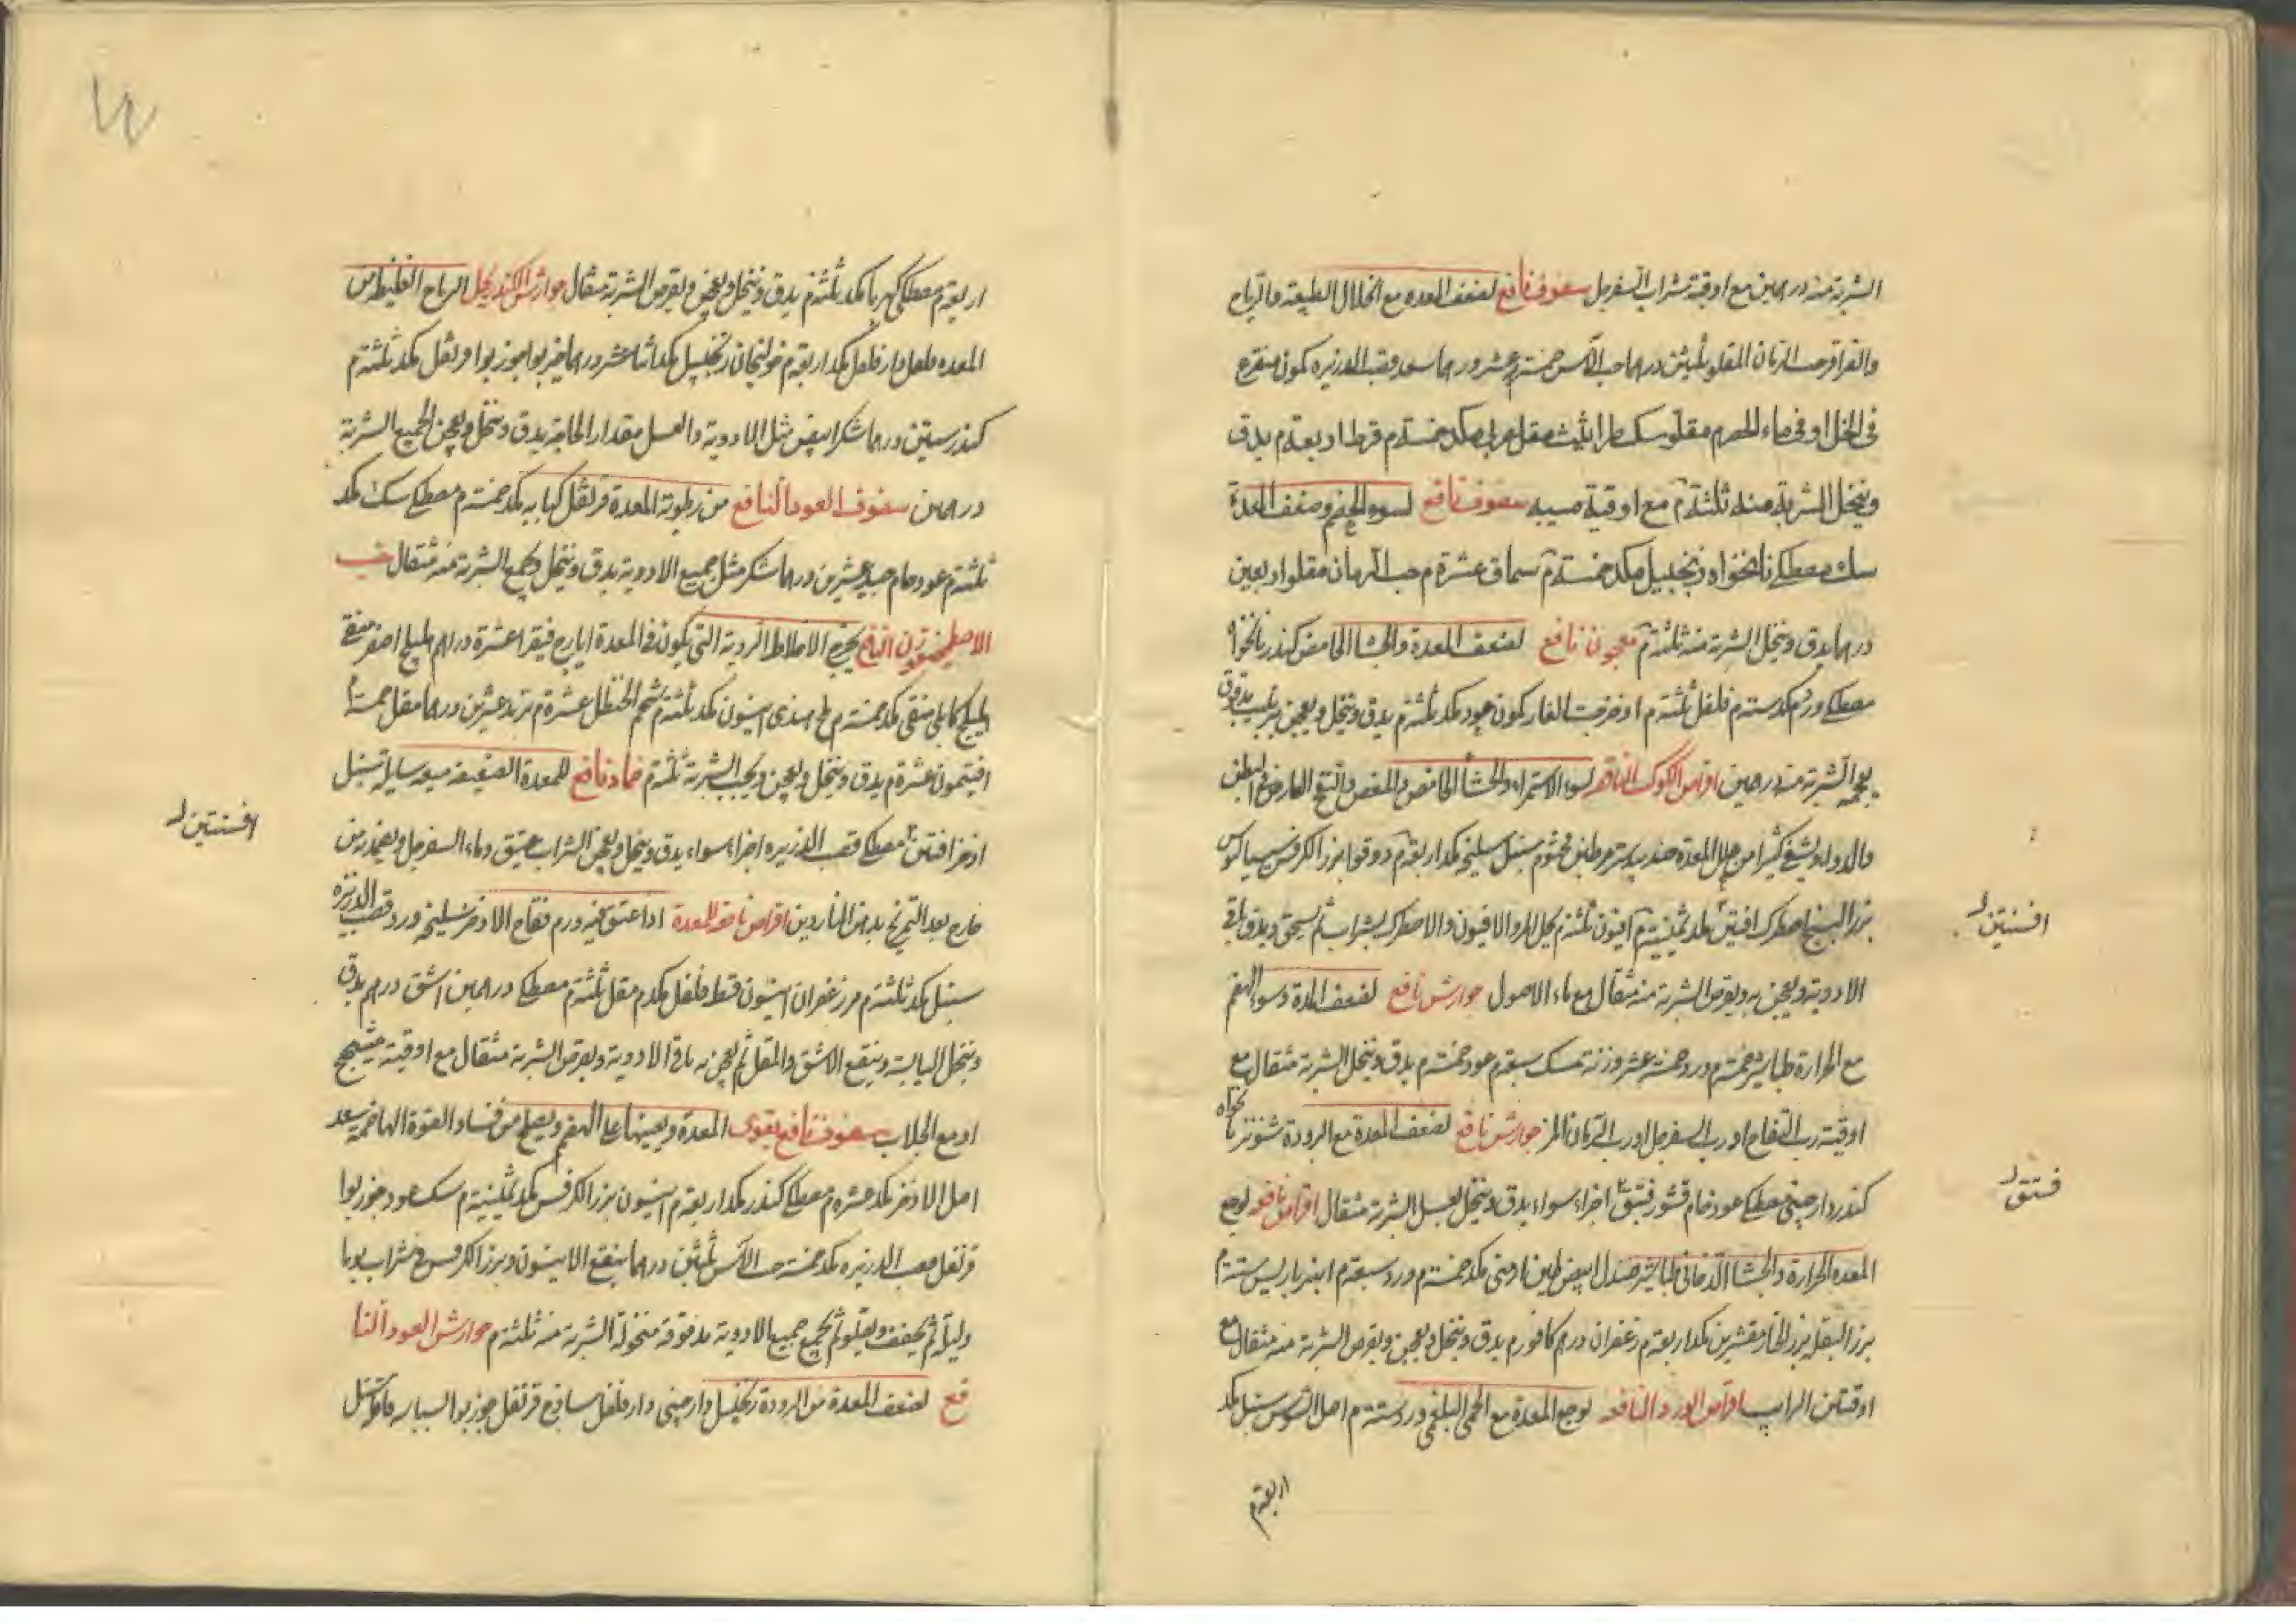 الشربة منه درهمين مع اوقية شراب السفرجل سفوف نافع لضعف المعده مع انحلال الطبيعة والرياح
والقراقر حب الرمان المقلو ثلثين درهما حب الآس خمسة عشر درهما سعد وقصب الذريره كمون منقوع
فى الخل او فى ماء الحصرم مقلو سك طراثيث مقل عربى مكد خمسة م قرط اربعة م يدق
وينخل الشربة منه ثلثة م مع اوقية ميبه سفوف نافع لسوء الهضم وضعف المعدة
سك مصطكى نانخواه زنجبيل مكد خمسة م سماق عشرة م حب الرمان مقلو اربعين
درهما يدق وينخل الشربة منه ثلثة م معجون نافع لضعف المعدة والجشا الحامض كندر نانخواه
مصطكى ورد مكد ستة م فلفل ثلثة م اذخر حب الغار كمون عود مكد ثلثة م يدق وينخل ويعجن بزبيب مدقوق
بعجمه الشربة منه درهمين اقراص الكوكب النافعه لسوء الاستمراء والجشأ الحامض والمغص والنفخ العارض فى البطن
والدوار ويشفى كثيرا من علل المعدة جندبيدستر طين مختوم سنبل سليخه مكد اربعة م دوقوا بزر الكرفس سيساليوس
بزر البنج اصطرك افتين مكد ثمنية م افيون ثلثة م يحل المر والافيون والاصطرك بشراب ثم يسحق ويدق باقى
الادوية ويعجن به ويقرص الشربة منه مثقال مع ماء الاصول جوارش نافع لضعف المعدة وسوء الهضم
مع الحرارة طباشير خمسة م ورد خمسة عشر وزنة م سك سبعة م عود خمسة م يدق وينخل الشربة مثقال مع
اوقية رب التفاح او رب السفرجل او رب الرمان المز جوارش نافع لضعف المعدة مع البرودة شونيز نانخواه
كندر دارچينى مصطكى عود خام قشور فتق اجزاء سواء يدق وينخل بعسل الشربة مثقال اقراص نافعه لوجع
المعده الحرارة والجشا الدخانى طباشير صندل ابيض طين ارمنى مكد خمسة م ورد سبعة م انبرباريس ستة م
بزر البقله بزر الخيار مقشرين مكد اربعة م زعفران درهم كافور م يدق وينخل ويعجن ويقرص الشربة منه مثقال مع
اوقيتين الرايب اقراص الورد النافعه لوجع المعدة مع الحمى البلغمى ورد ستة م اصل السوس سنبل مكد
اربعة م
افسنتين
فستق
اربعة م مصطكى كهربا مكد ثلثة م يدق وينخل ويعجن ويقرص الشربة مثقال جوارش الكندر يحل الرياح الغليظه من
المعده فلفل دارفلفل مكد اربعة م خولنجان زنجبيل مكد اثنا عشر درهما خيربوا جوزبوا قرنفل مكد ثلثة م
كندر ستين درهما شكر ابيض مثل الادوية والعسل مقدار الحاجة يدق وينخل ويعجن الجميع الشربة
درهمين سفوف العود النافع من رطوبة المعدة قرنفل كبابه مكد خمسة م مصطكى سك مكد
ثلثة م عود خام جيد عشرين درهما شكر مثل جميع الادوية يدق وينخل ويجمع الشربة منه مثقال حب
الاصطمخيقون النافع يخرج الاخلاط الردية التى يكون فى المعدة ايارج فيقرا عشرة دراهم هليلج اصفر منقى
هليلج كابلى منقى مكد خمسة م ملح هندى انيسون مكد ثلثة م شحم الحنظل عشرة م تربد عشرين درهما مقل خمسة م
افتيمون عشرة م يدق وينخل ويعجن ويحبب الشربة ثلثة م ضماد نافع للمعدة الضعيفه ميعه سايله سنبل
اذخر افتين مصطكى قصب الذريره اجزاء سواء يدق وينخل ويعجن الشراب عتيق وماء السفرجل ويضمد به من
خارج بعد التمريخ بدهن الناردين اقراص نافعه للمعدة اذا عتق فيه ورم فقاح الاذخر سليخه ورد قصب الذريره
سنبل مكد ثلثة م مر زعفران انيسون قسط فلفل مكد م مقل ثلثة م مصطكى درهمين اشق درهم يدق
وينخل اليابسة وينقع الاشق والمقل ثم يعجن به باقى الادوية ويقرص الشربة مثقال مع اوقية ميفختج
او مع الجلاب سفوف نافع يقوى المعدة ويعينها على الهضم ويصلح من فساد القوة الهاضمه سعد
اصل الاذخر مكد عشره م مصطكى كندر مكد اربعة م انيسون بزر الكرفس مكد ثمنية م سك عود جوزبوا
قرنفل قصب الذريره مكد خمسة حب الآس ثلثين درهما ينقع الانيسون وبزر الكرفس فى شراب يوما
وليلة ثم يجفف ويقلو ثم يجمع جميع الادوية مدقوقة منخولة الشربة منه ثلثة م جوارش العود النا
فع لضعف المعدة من البرودة زنجبيل دارچينى دارفلفل ساذج قرنفل جوزبوا بسباسه قاقله سنبل
افسنتين